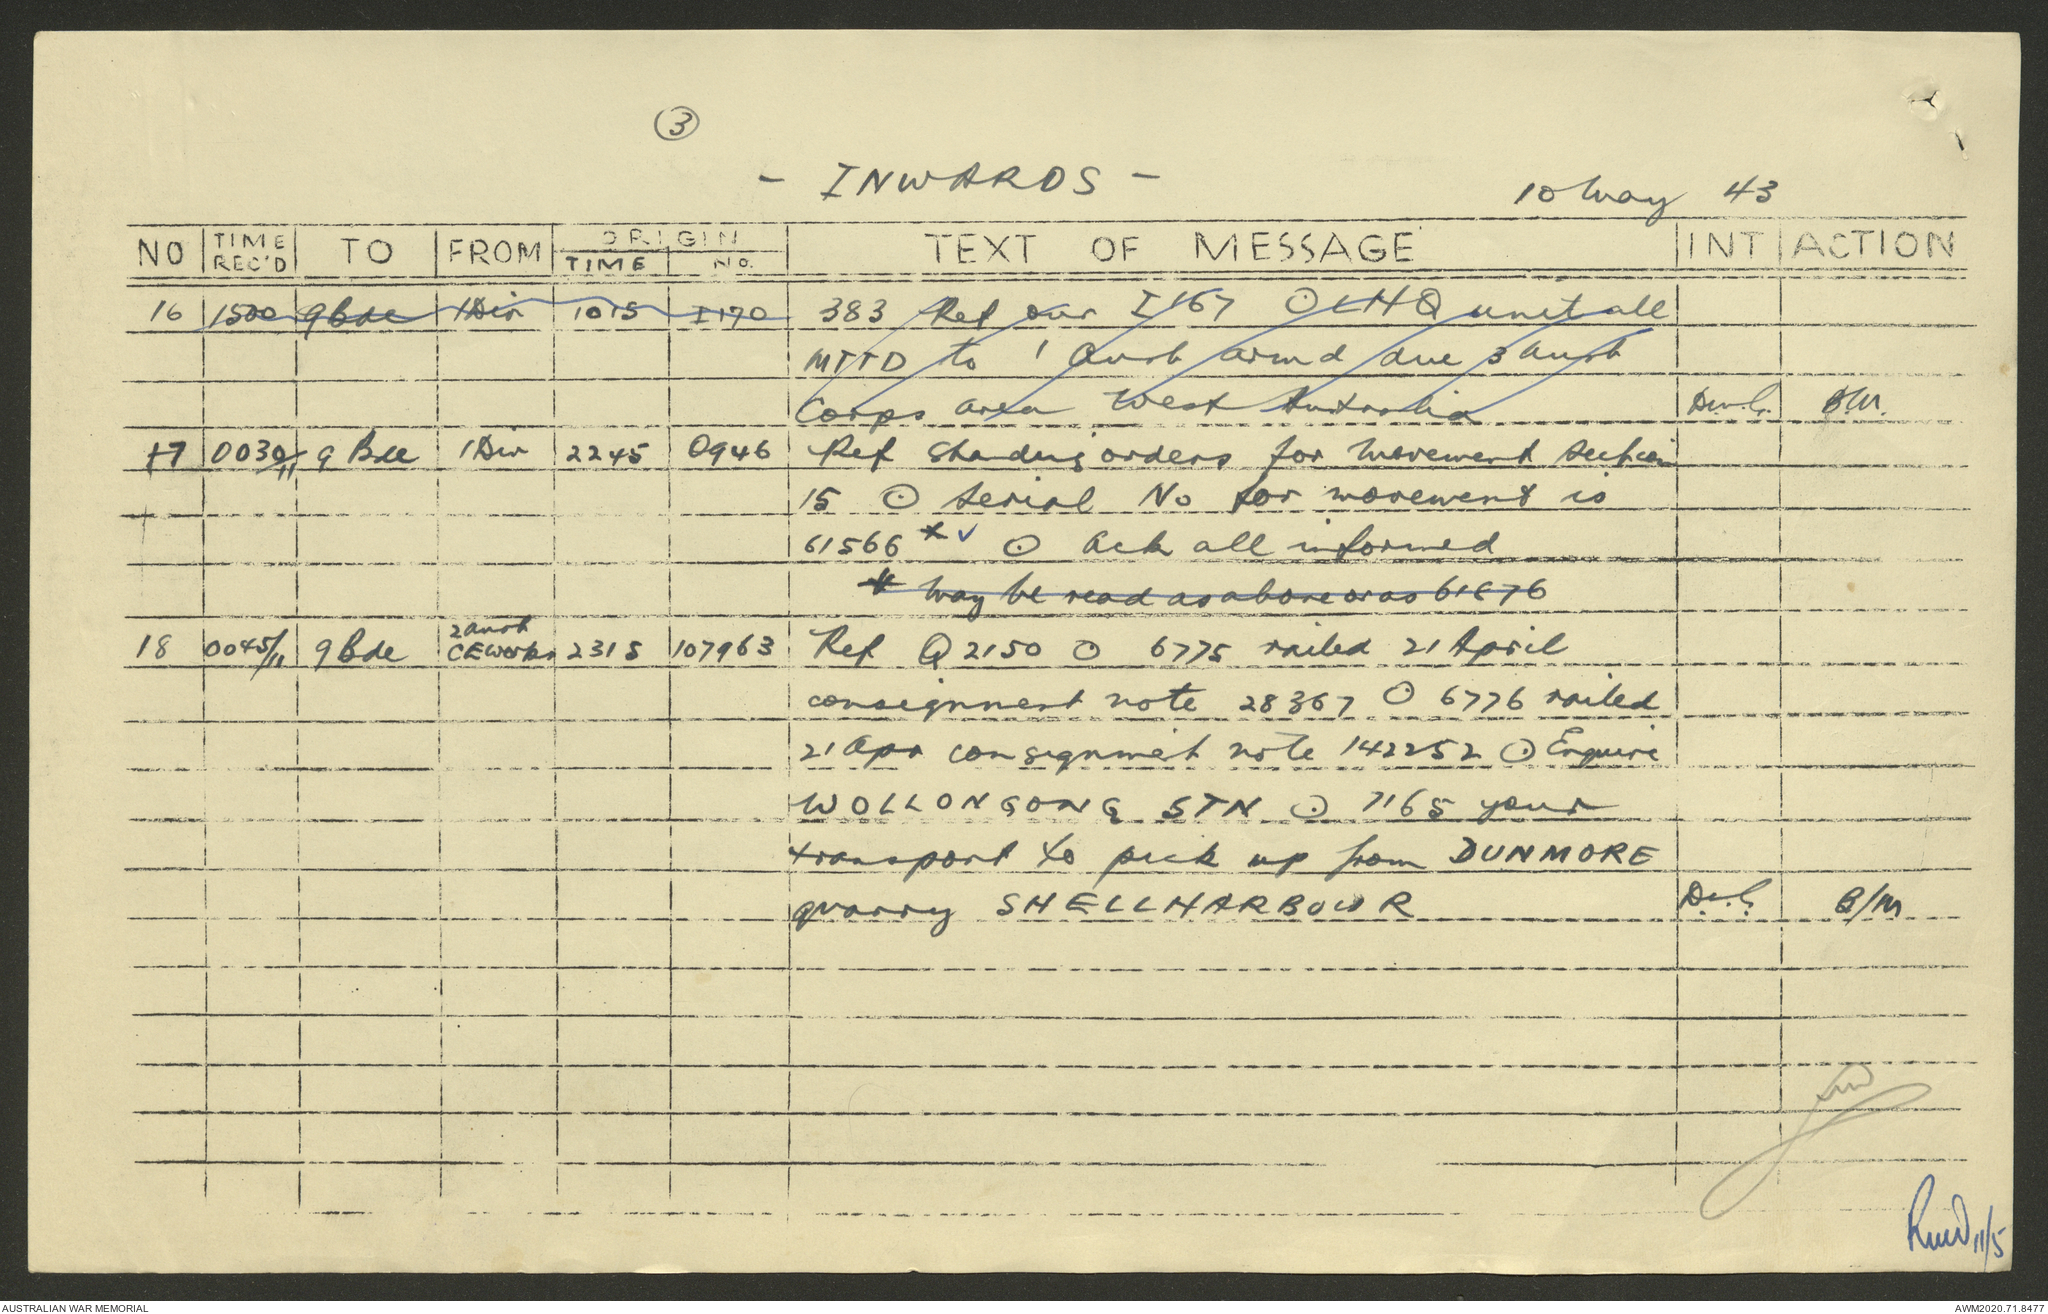 3
- INWARDS -
10 May 43
NO TIME REC'D TO FROM ORIGIN TIME No. TEXT OF MESSAGE INT ACTION
16 1500 9 Bde 1 Div 1015 I170 383 Ref our I 167 ⊙ LHQ unit all
MTTD to 1 Aust armd due 3 Aust
Corps area West Australia B.M.
17 0030/11 9 Bde 1 Div 2245 O946 Ref Standing orders for movement section
15 ⊙ Serial No for movement is
61566 * ✓ ⊙ Ack all informed
* May be read as above or as 61676
18 0045/11 9 Bde 2 Aust CE Works 2315 107963 Ref Q2150 ⊙ 6775 railed 21 April
consignment note 28367 ⊙ 6776 railed
21 Apr consignment note 142252 ⊙ Enquire
WOLLONGONG STN ⊙ 7165 your
transport to pick up from DUNMORE
quarry SHELLHARBOUR B/M
11/5
AUSTRALIAN WAR MEMORIAL AWM2020.71.8477